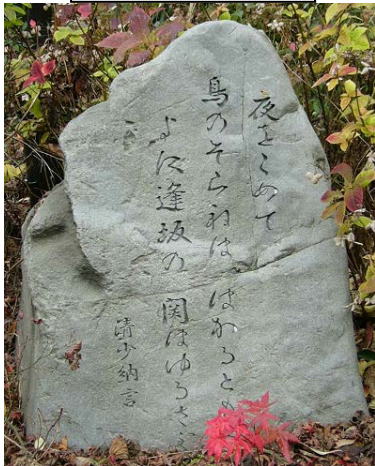 夜をこめて
鳥のそらねははかるとも
よに逢坂の関はゆるさ
清少納言